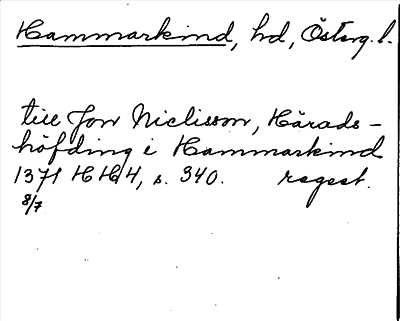 Hammarkind, hd, Österg.l.
till Jon Niclisson, Härads-
höfding i Hammarkind
1371 HH 4, s. 340. regest.
8/7